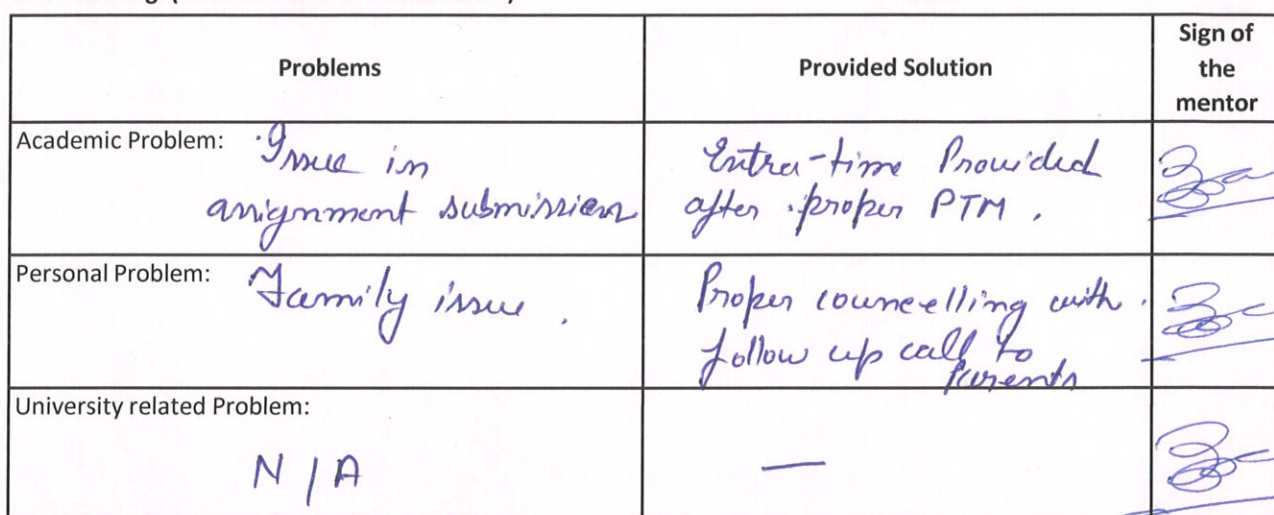 Problems
Provided Solution
Sign of
the
mentor
Academic Problem:
Issue in
assignment submission
Extra-time Provided
after proper PTM.
Personal Problem:
Family issue.
Proper councelling with
follow up call to
Parents
University related Problem:
N/A
—